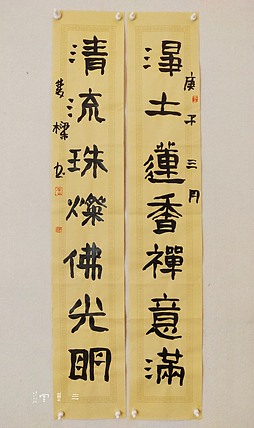 淨土蓮香禪意滿
庚子三月
清流珠燦佛光明